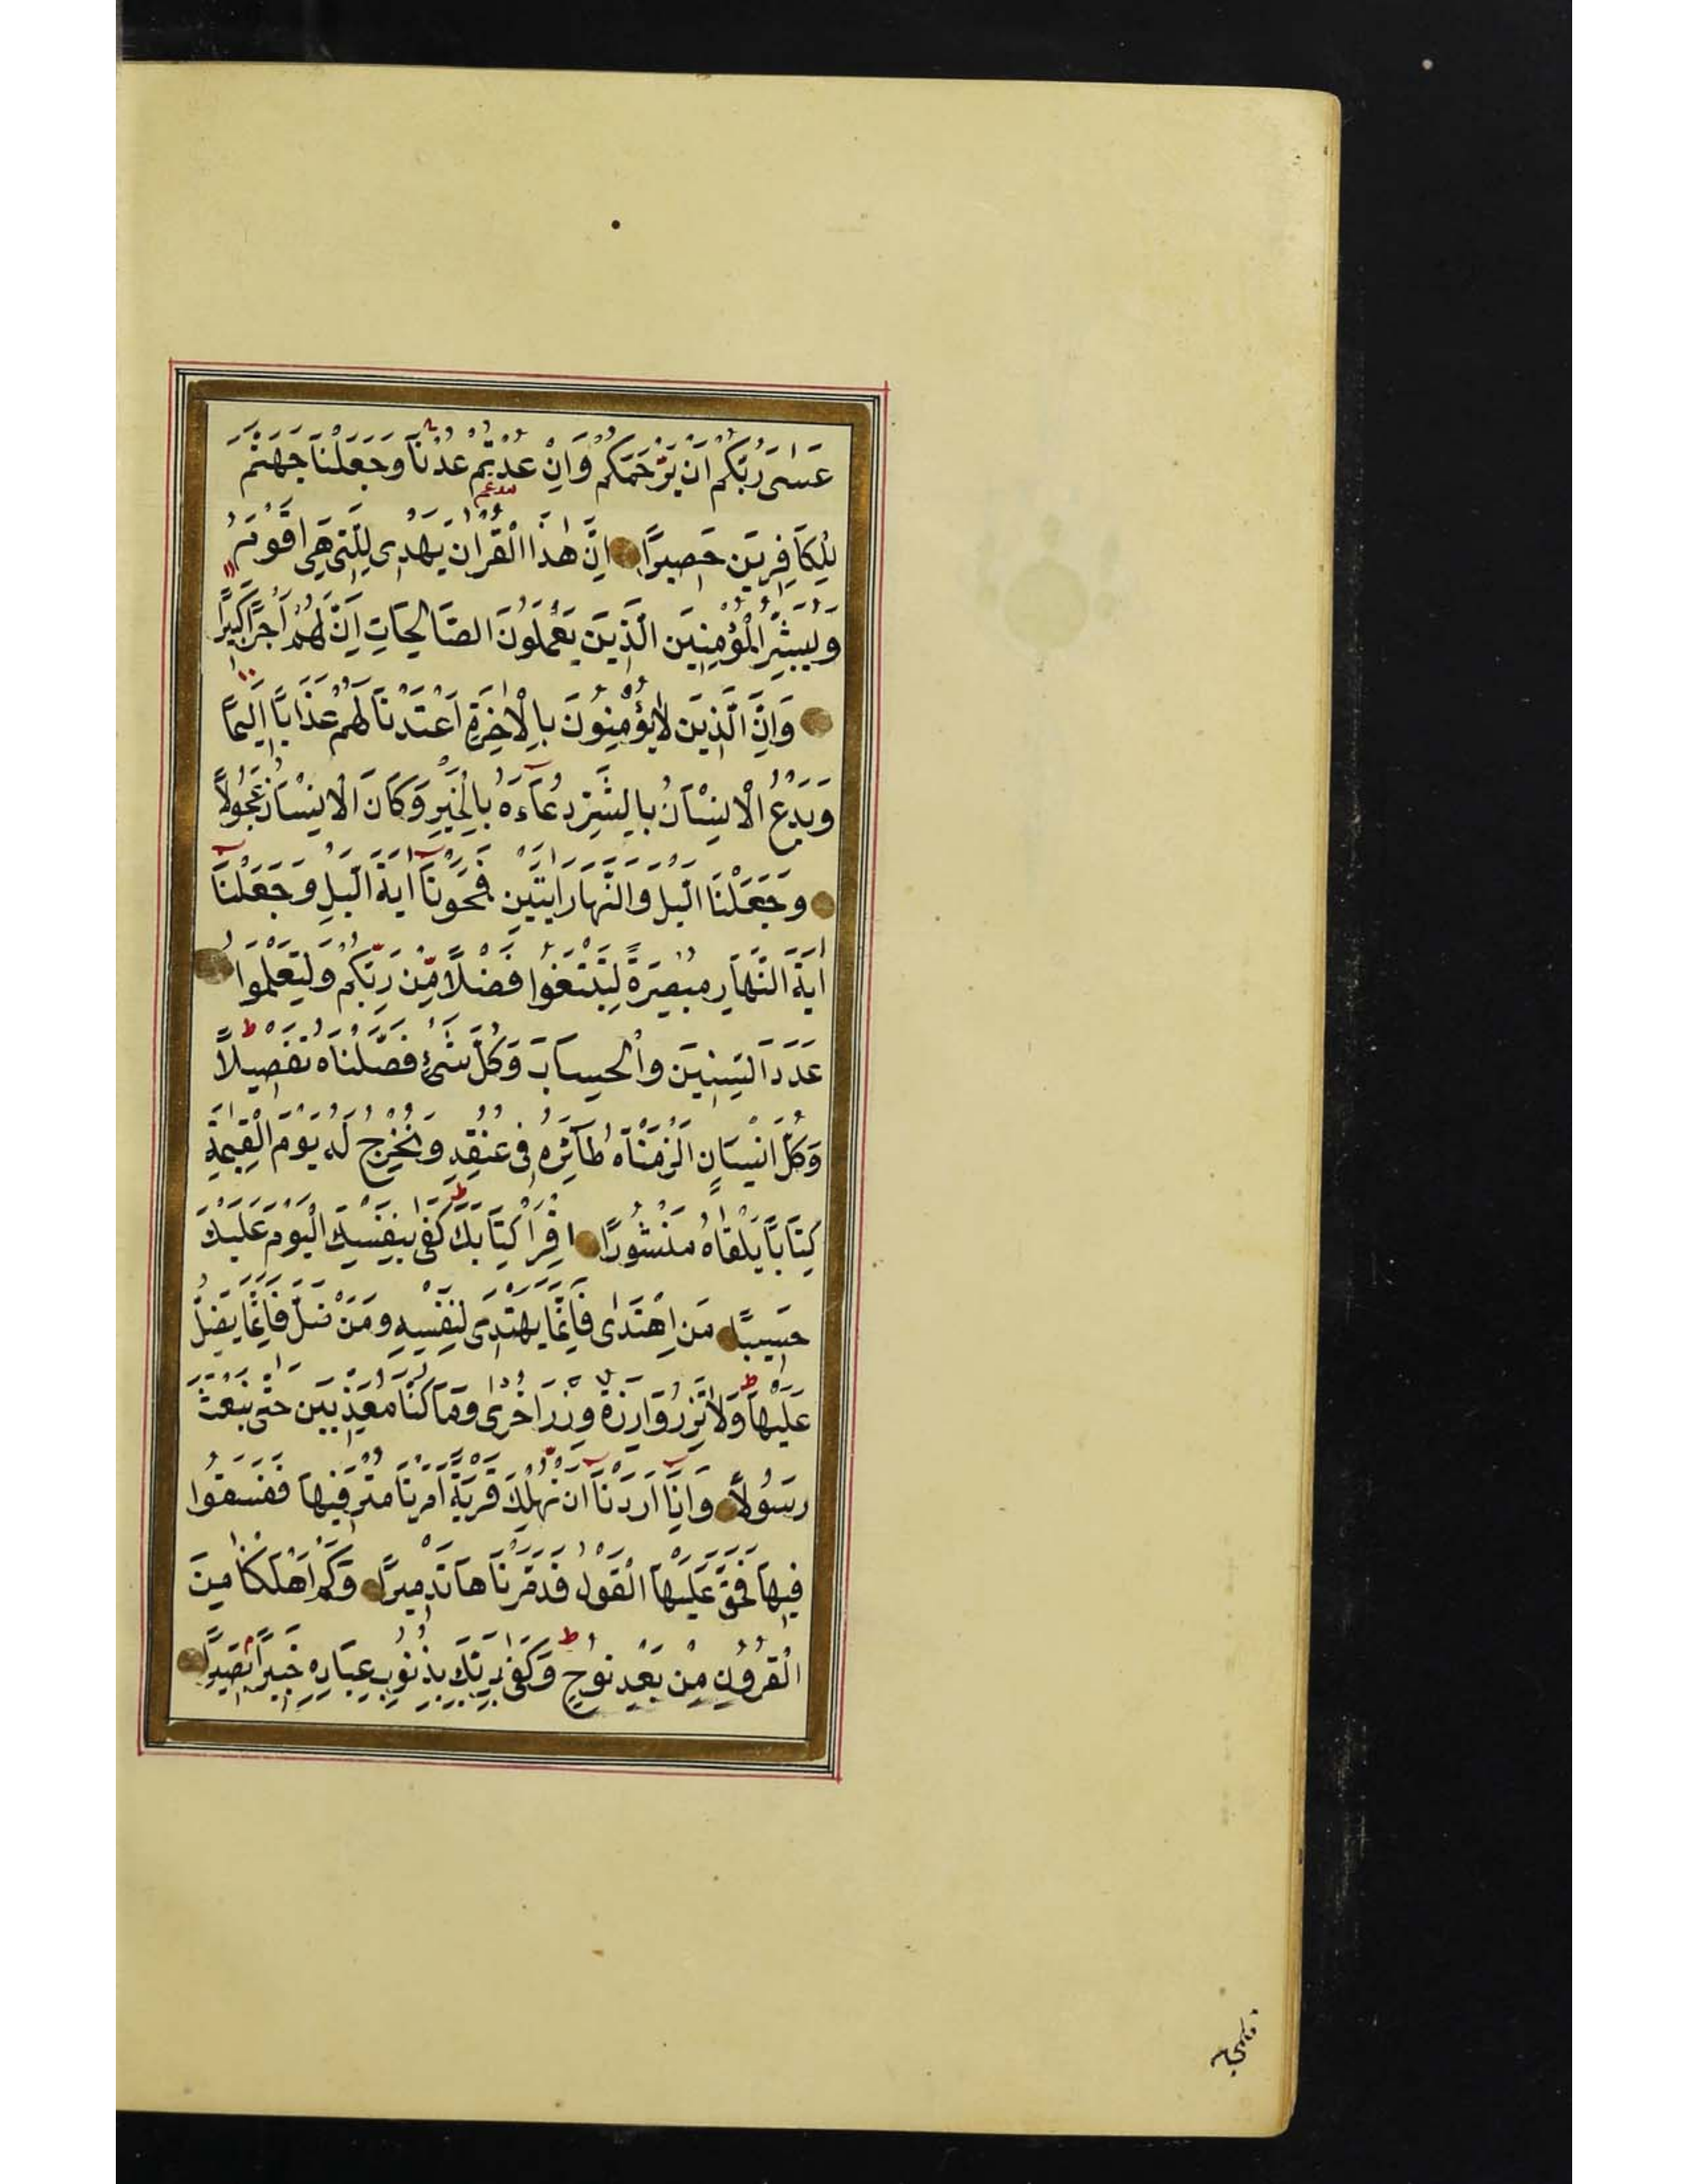 عَسٰى رَبُّكُمْ اَنْ يَرْحَمَكُمْ وَاِنْ عُدْتُمْ عُدْنَا وَجَعَلْنَا جَهَنَّمَ
لِلْكَافِرِيَن حَصِيرًا اِنَّ هٰذَا الْقُرْاٰنَ يَهْدِى لِلَّتِى هِىَ اَقْوَمُ
وَيُبَشِّرُ الْمُؤْمِنِيَن الَّذِيَن يَعْمَلُونَ الصَّالِحَاتِ اَنَّ لَهُمْ اَجْرًا كَبِيرًا
وَاَنَّ الَّذِيَن لَا يُؤْمِنُونَ بِالْاٰخِرَةِ اَعْتَدْنَا لَهُمْ عَذَابًا اَلِيمًا
وَيَدْعُ الْاِنْسَانُ بِالشَّرِّ دُعَآءَهُ بِالْخَيْرِ وَكَانَ الْاِنْسَانُ عَجُولًا
وَجَعَلْنَا الَّيْلَ وَالنَّهَارَ اٰيَتَيْنِ فَمَحَوْنَآ اٰيَةَ الَّيْلِ وَجَعَلْنَآ
اٰيَةَ النَّهَارِ مُبْصِرَةً لِتَبْتَغُوا فَضْلًا مِّنْ رَبِّكُمْ وَلِتَعْلَمُوا
عَدَدَ السِّنِيَن وَالْحِسَابَ وَكُلَّ شَىْءٍ فَصَّلْنَاهُ تَفْصِيلًا
وَكُلَّ اِنْسَانٍ اَلْزَمْنَاهُ طَآئِرَهُ فِى عُنُقِهِ وَنُخْرِجُ لَهُ يَوْمَ الْقِيٰمَةِ
كِتَابًا يَلْقٰاهُ مَنْشُورًا اِقْرَاْ كِتَابَكَ كَفٰى بِنَفْسِكَ الْيَوْمَ عَلَيْكَ
حَسِيبًا مَنِ اهْتَدٰى فَاِنَّمَا يَهْتَدِى لِنَفْسِهِ وَمَنْ ضَلَّ فَاِنَّمَا يَضِلُّ
عَلَيْهَا وَلَا تَزِرُ وَازِرَةٌ وِزْرَ اُخْرٰى وَمَا كُنَّا مُعَذِّبِيَن حَتّٰى نَبْعَثَ
رَسُولًا وَاِذَآ اَرَدْنَآ اَنْ نُهْلِكَ قَرْيَةً اَمَرْنَا مُتْرَفِيهَا فَفَسَقُوا
فِيهَا فَحَقَّ عَلَيْهَا الْقَوْلُ فَدَمَّرْنَاهَا تَدْمِيرًا وَكَمْ اَهْلَكْنَا مِنَ
الْقُرُونِ مِنْ بَعْدِ نُوحٍ وَكَفٰى بِرَبِّكَ بِذُنُوبِ عِبَادِهِ خَبِيرًا بَصِيرًا